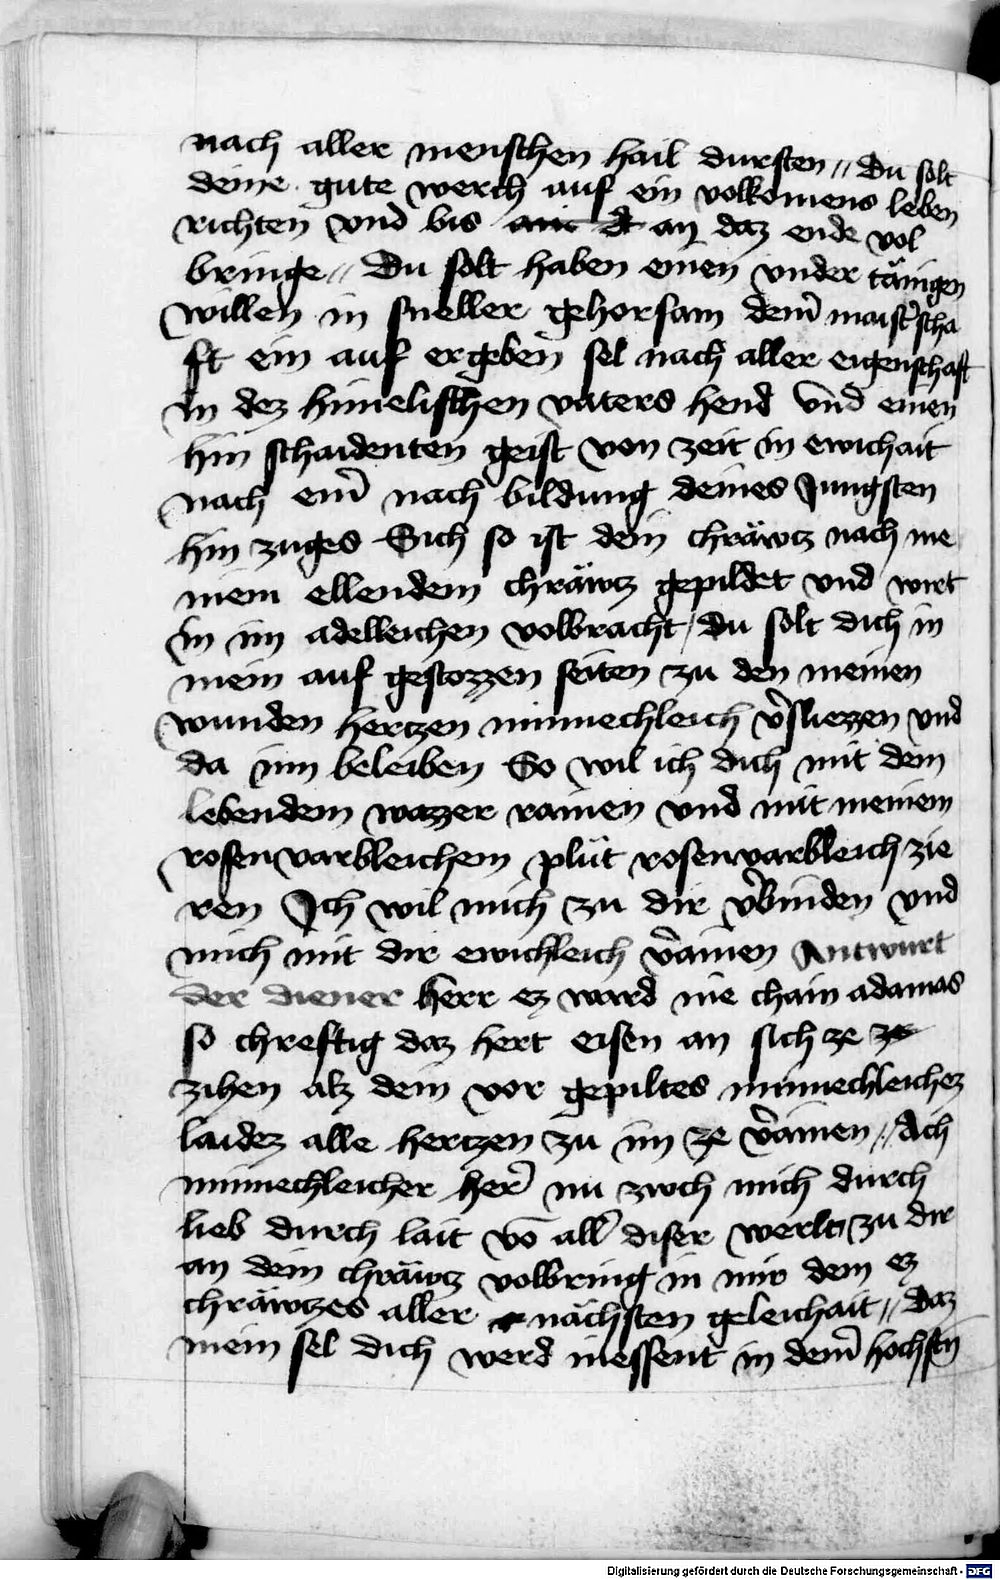 nach aller menschen hail dursten // du solt
deine gute werch auf ein volkomens leben
richten vnd bis an daz ende vol
bringe // Du solt haben einen vnder tänigen
willen in sneller gehorsam dem̄ maist̄scha
ft ein auf ergeben sel nach aller eigenschaft
in dez himelischen vaters hend vnd einen
hin schaidenten geist von zeit in ewichait
nach eim̄ nach bildung deines Jungsten
hin zuges Sich so ist dein chräwtz nach me
inem ellendem chräwtz gepildet vnd wirt
in im adelleichen volbracht / du solt dich in
mein auf gestozzen seiten zu den meinen
wunden hertzen minnechleich v̄sliezzen vnd
da inn beleiben So wil ich dich mit dem
lebendem wazzer rainen vnd mit meinem
rosenvarbleichem plüt rosenvarbleich zie
ren Ich wil mich zu dir v̄binden vnd
mich mit dir ewichleich v̄ainen Antwurt
der diener herr ez ward nie chain adamas
so chreftig daz hert eisen an sich ze ze
zihen alz dein vor gepiltes minnechleichez
laidez alle hertzen zu im ze v̄ainen // Ach
minnechleicher her̄ nu zwch mich durch
lieb durch lait vō all̄ diser werlt zu dir
an dein chräwtz volbring in mir dem ez
chräwtzes aller nächsten geleichait // daz
mein sel dich werd niessent in dem̄ hochstn̄
Digitalisierung gefördert durch die Deutsche Forschungsgemeinschaft - DFG